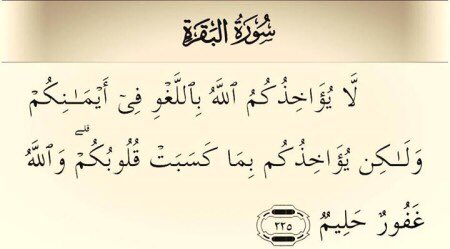 سُورَةُ البَقَرَةِ
لَّا يُؤَاخِذُكُمُ ٱللَّهُ بِٱللَّغْوِ فِىٓ أَيْمَـٰنِكُمْ
وَلَـٰكِن يُؤَاخِذُكُم بِمَا كَسَبَتْ قُلُوبُكُمْ ۗ وَٱللَّهُ
غَفُورٌ حَلِيمٌ ٢٢٥